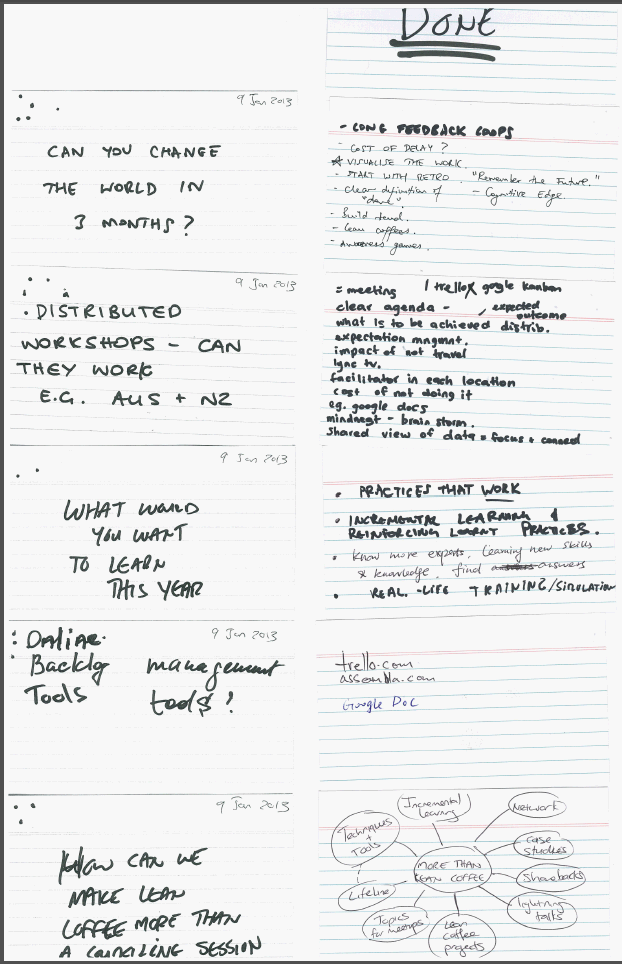 DONE
9 Jan 2013
CAN YOU CHANGE
THE WORLD IN
3 MONTHS?
- LONG FEEDBACK LOOPS
- COST OF DELAY?
* VISUALISE THE WORK.
- START WITH RETRO. "Remember the Future."
- Clear definition of "done". - Cognitive Edge.
- Build trend.
- Lean coffees.
- Awareness games.
9 Jan 2013
DISTRIBUTED
WORKSHOPS - CAN
THEY WORK
E.G. AUS + NZ
= meeting / trello google kanban
clear agenda - , expected outcome
what is to be achieved distrib.
expectation mngmnt.
impact of not travel
lync tv.
facilitator in each location
cost of not doing it
eg. google docs
- brain storm.
shared view of data = focus +
9 Jan 2013
WHAT WOULD
YOU WANT
TO LEARN
THIS YEAR
• PRACTICES THAT WORK
• INCREMENTAL LEARNING &
REINFORCING LEARNT PRACTICES.
• Know more experts, learning new skills
& knowledge, find answers
• REAL-LIFE TRAINING/SIMULATION
9 Jan 2013
Backlog management
Tools tools?
trello.com
assembla.com
Google Doc
9 Jan 2013
How CAN WE
MAKE LEAN
COFFEE MORE THAN
A COUNCILING SESSION
Incremental Learning
Network
Techniques + Tools
Case Studies
MORE THAN LEAN COFFEE
Sharebacks
Lifeline
lightning talks
Topics for meetups
Lean coffee projects